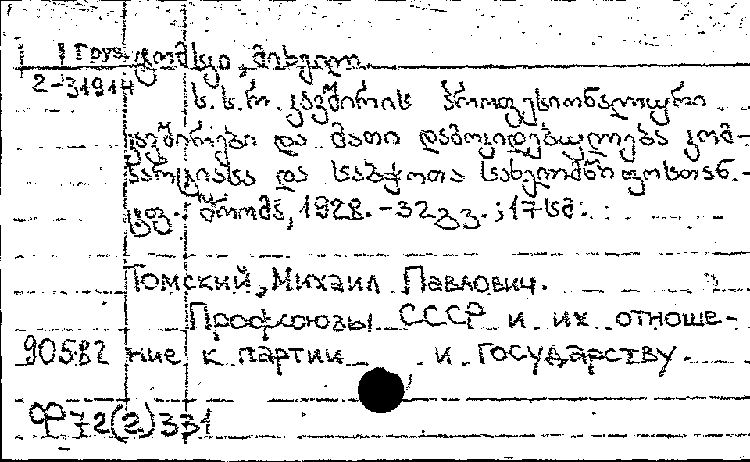 Груз ტომსკი, მიხეილ.
2-31914
ს.ს.რ. კავშირის პროფესიონალური
კავშირები და მათი დამოკიდებულება კომ-
პარტიასა და საბჭოთა სახელმწიფოსთან.-
ტფ. შრომა, 1928.-32 გვ.; 17 სმ.
Томский, Михаил Павлович.
Профсоюзы СССР и их отноше-
90582 ние к партии и государству.
Ф72(2)331